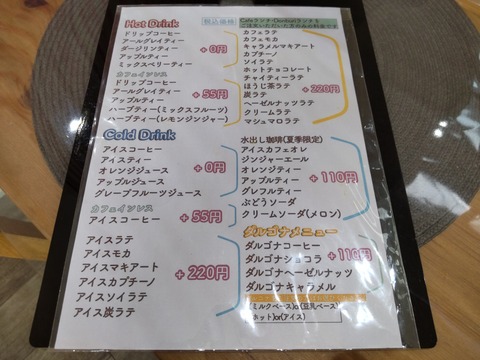 Hot Drink
税込価格
Cafeランチ・Donburiランチを
ご注文いただいた方のみの料金です
ドリップコーヒー
アールグレイティー
ダージリンティー
アップルティー
ミックスベリーティー
+0円
カフェインレス
ドリップコーヒー
アールグレイティー
アップルティー
ハーブティー(ミックスフルーツ)
ハーブティー(レモンジンジャー)
+55円
カフェラテ
カフェモカ
キャラメルマキアート
カプチーノ
ソイラテ
ホットチョコレート
チャイティーラテ
ほうじ茶ラテ
炭ラテ
ヘーゼルナッツラテ
クリームラテ
マシュマロラテ
+220円
Cold Drink
アイスコーヒー
アイスティー
オレンジジュース
アップルジュース
グレープフルーツジュース
+0円
カフェインレス
アイスコーヒー
+55円
アイスラテ
アイスモカ
アイスマキアート
アイスカプチーノ
アイスソイラテ
アイス炭ラテ
+220円
水出し珈琲(夏季限定)
アイスカフェオレ
ジンジャーエール
オレンジティー
アップルティー
グレフルティー
ぶどうソーダ
クリームソーダ(メロン)
+110円
ダルゴナメニュー
ダルゴナコーヒー
ダルゴナショコラ
ダルゴナヘーゼルナッツ
ダルゴナキャラメル
+110円
(ミルクベース)or(豆乳ベース)
(ホット)or(アイス)